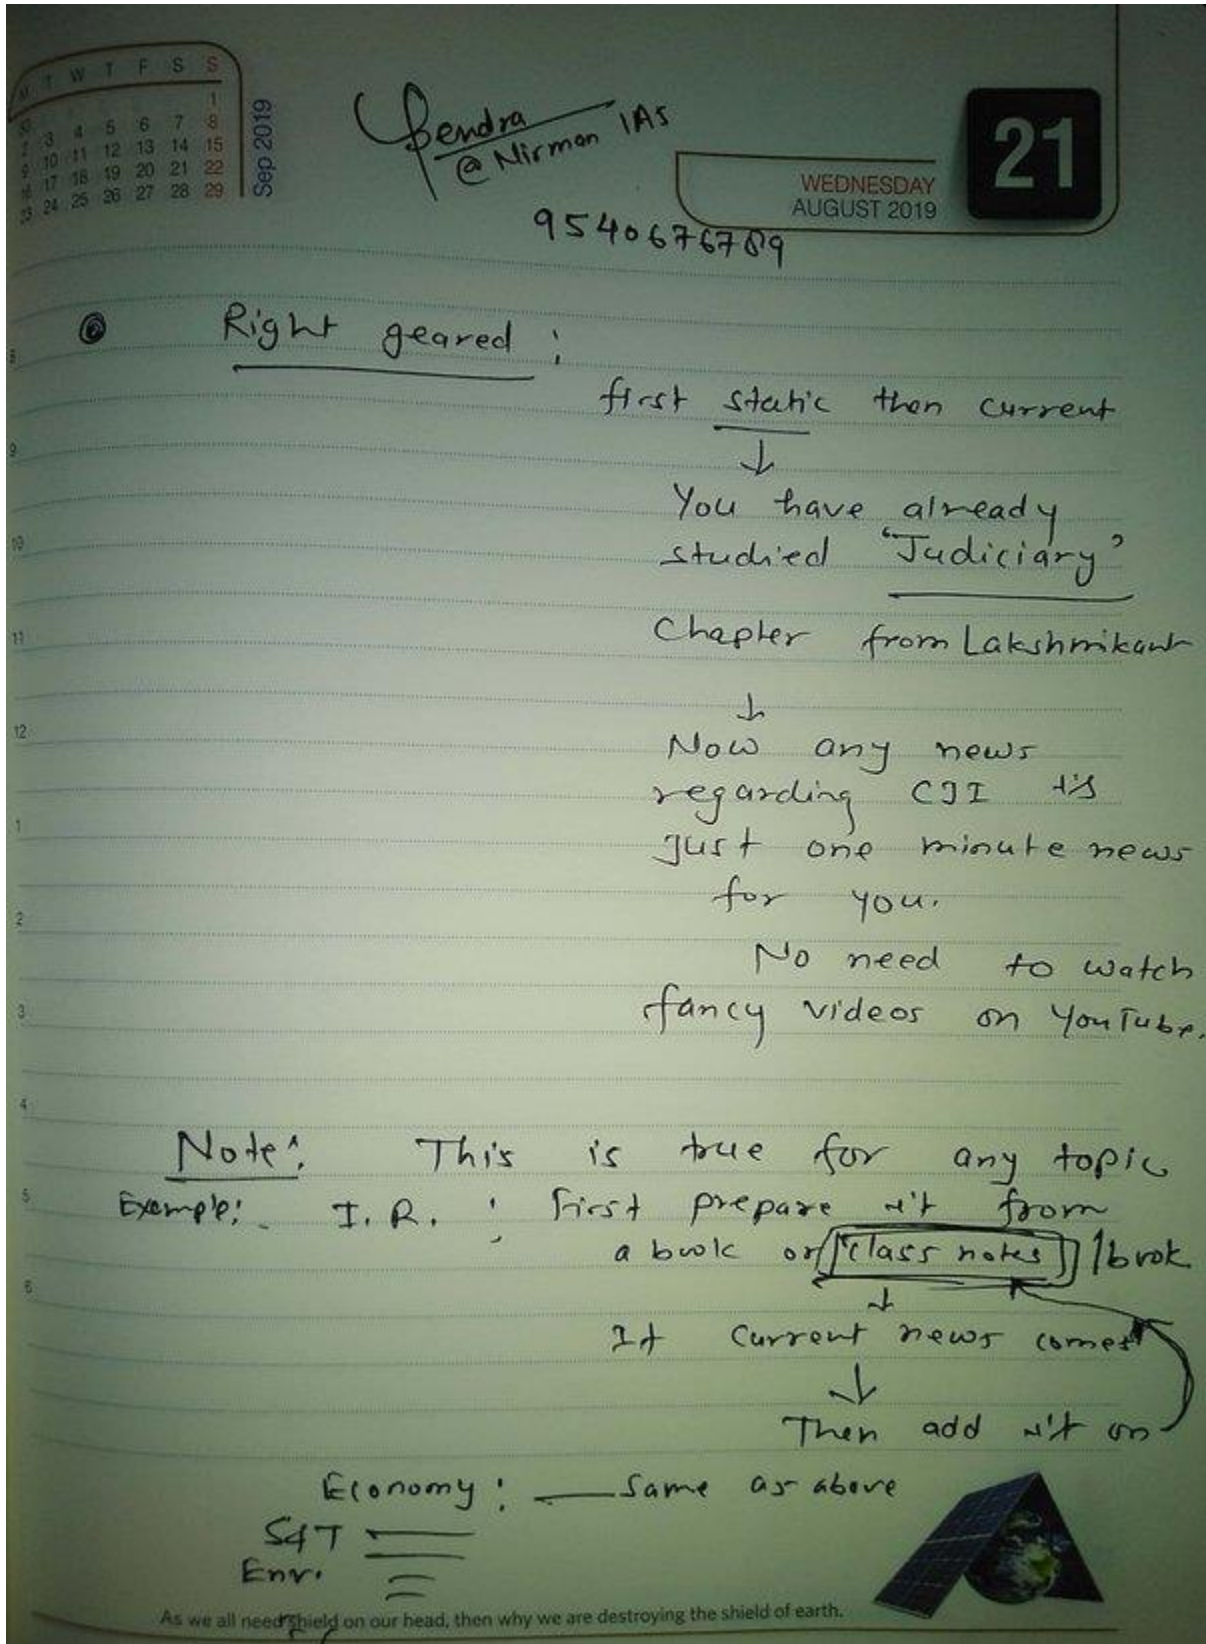 M T W T F S S
1
2 3 4 5 6 7 8
9 10 11 12 13 14 15
16 17 18 19 20 21 22
23 24 25 26 27 28 29
Sep 2019
@ Nirman IAS
WEDNESDAY
AUGUST 2019
21
9540676789
Right geared :
first static then current
↓
You have already
studied "Judiciary"
Chapter from Lakshmikant
↓
Now any news
regarding CJI is
just one minute news
for you.
No need to watch
fancy videos on YouTube.
Note: This is true for any topic
Example:- I.R. : First prepare it from
a book or [class notes] / book
↓
If current news comes
↓
Then add it on
Economy : — Same as above
S&T
Env.
As we all need shield on our head, then why we are destroying the shield of earth.
8
9
10
11
12
1
2
3
4
5
6